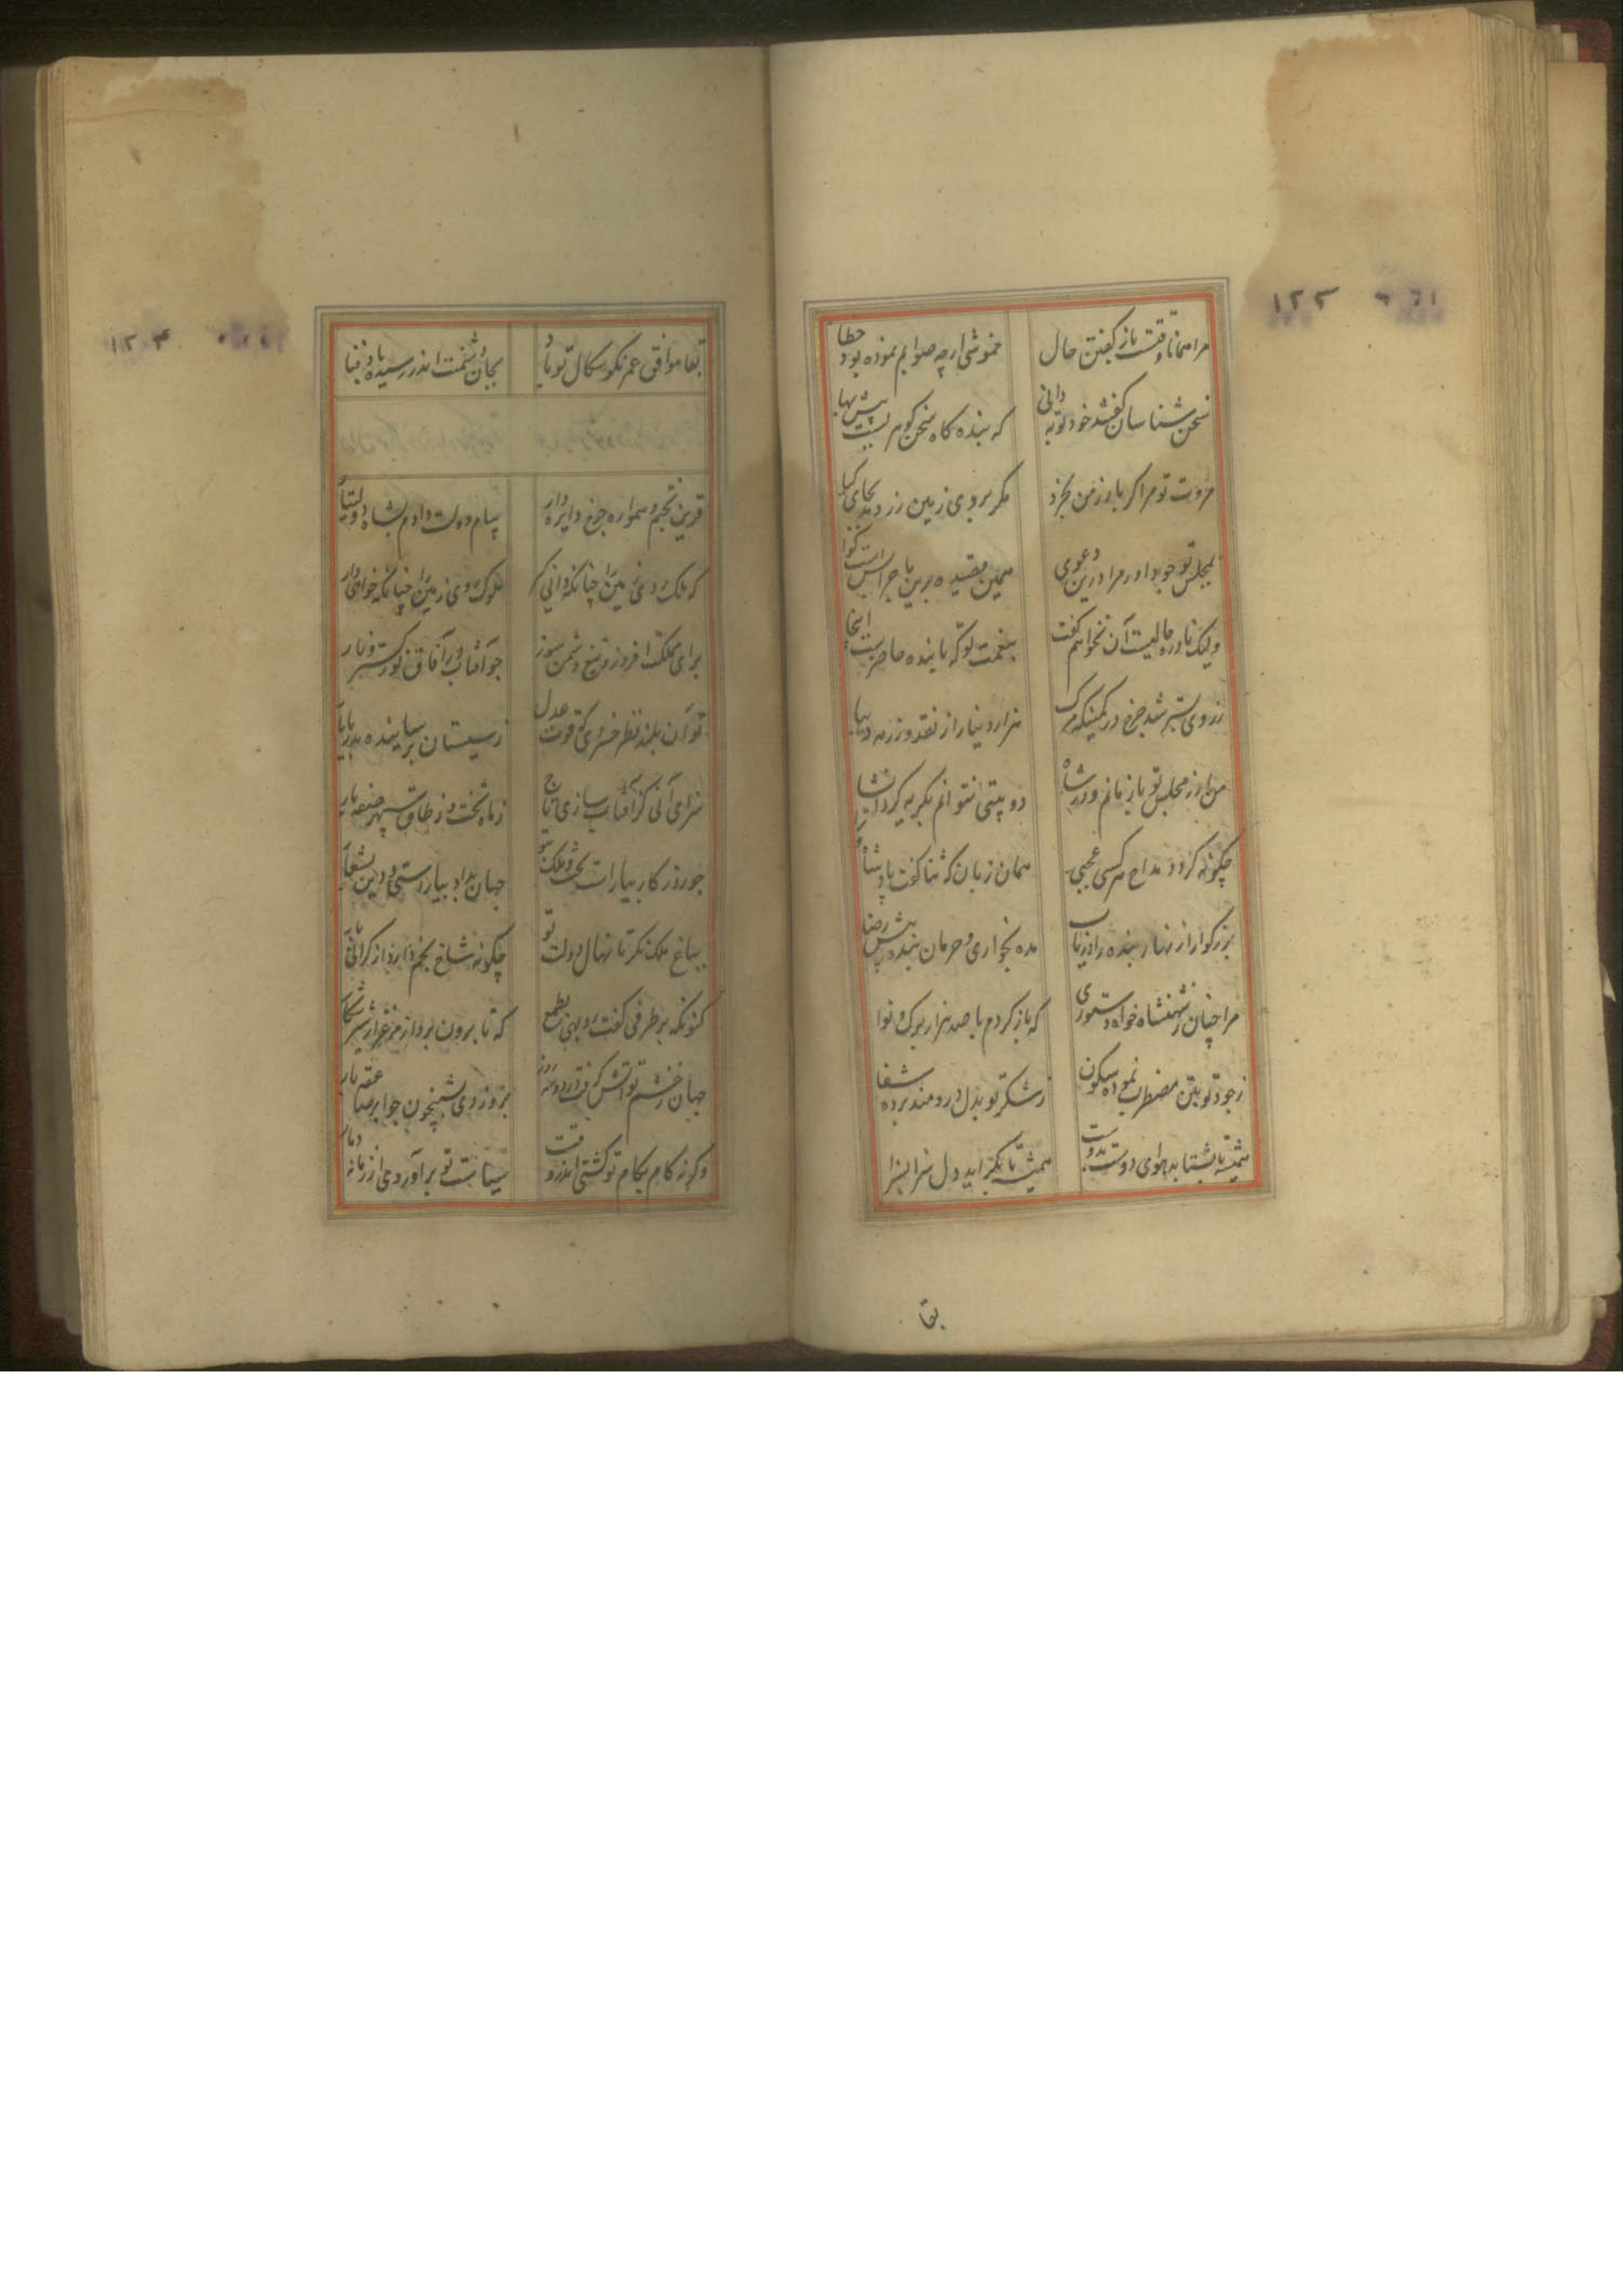 مرا همانا وقتست باز گفتن حال خموشی ارچه صوابم نموده بود خطا
سخن شناسان گفتند خود تو به دانی که بنده گاه سخن گوهریست پیش بها
مروت تو مرا گر بار زمن بخرد مگر بروی زمین زر دیجای گیا
بمجلس تو خود داور مرا درین دعوی همین قصیده برین ماجرا بس است گوا
ولیک نادره حالیست آن نخواهم گفت بنعمت تو که با بنده حاضرست اینجا
هزار دینار از نقد و زر مه دیبا
من ار ز مجلس تو باز مانم و در شاه دو بیتی نتوانم بگریه کرد انشا
چگونه گردد مداح هر کسی عجبی همان زبان که ثنا گفت پادشاه
بزرگوارا زنهار بنده را دریاب مده بخواری و حرمان بنده پیش رضا
مرا چنان ز شهنشاه خواه دستوری که باز گردم با صد هزار برگ و نوا
ز جود تو بتن مضطرب نموده سکون ز شکر تو بدل دردمند برده شفا
همیشه تا بشتابد هوای دوست بدوست همیشه تا بگراید دل سزا بسزا
بقا
بقا موافق عمر نکو سگال تو باد بجان دشمنت اندر رسیده باد فنا
قرین تختم و همواره چرخ دایره دار پیام دولت دادم بشاه دولتیار
که ملک روی زمین را چنانکه دانی گیر ملوک روی زمین را چنانکه خواهی دار
برای مملکت افروز و تیغ دشمن سوز چو آفتاب در آفاق نور گستر و نار
تو آن بلند نظر خسروی که قوت عدل ز سیستان برساننده بدریابار
سزای آنی کز آفتاب سازی تاج ز ماه تخت و ز طاق سپهر صفه بار
چو روزگار بیاراست تخت و ملک بتو جهان بداد بیارراستی و دین بشعار
بباغ ملک نگر تا نهال دولت تو چگونه شاخ بخم دارد از گرانی بار
کنونکه بر طرفی گفت روبهی بطمع که تا برون برد از مرغزار شیر شکار
جهان ز خشم تو آتش گرفت بروز روی شبیخون چو ابر صاعقه بار
و گرنه کام بکام تو گشتی اندر وقت سیاست تو برآوردی از زمانه دمار